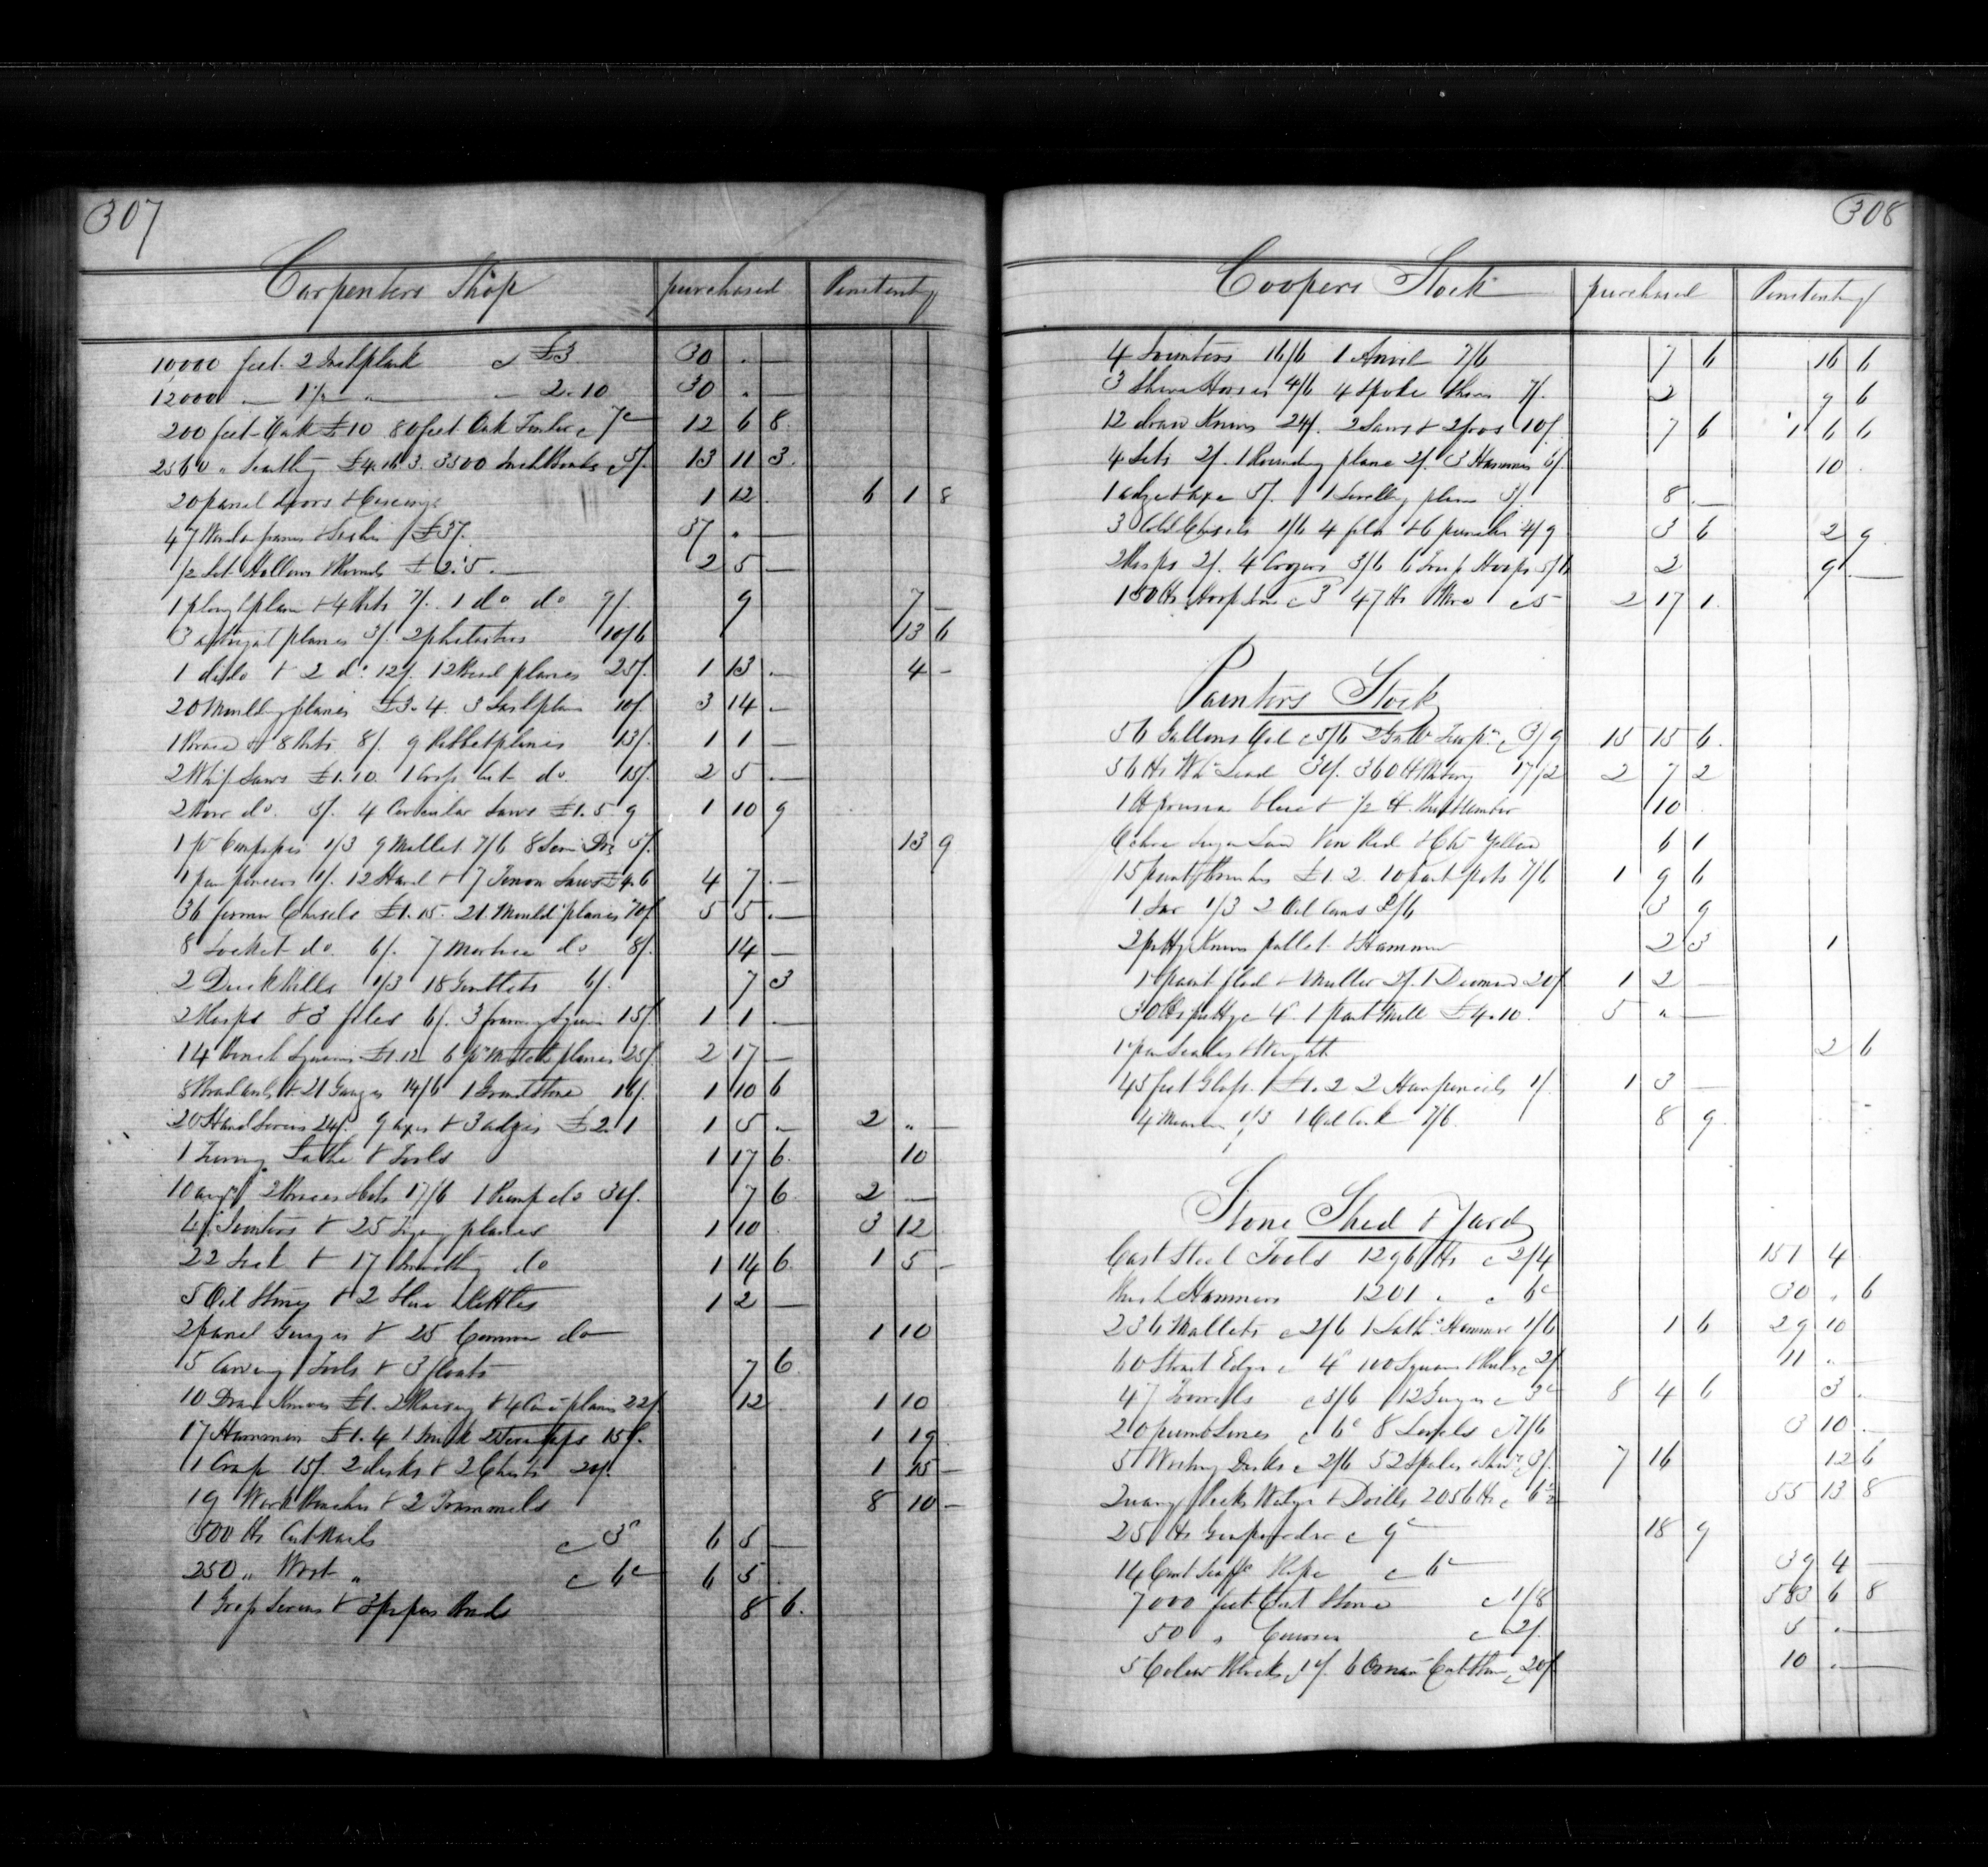 307
Carpenters Shop purchased Penitenty
10,000 feet 2 Inch plank @ £3 30 . —
12000 — 1½ " — 2.10 30 . —
200 feet Oak £10 80 feet Oak Timber @ 7d 12 6 8
2560 " Scantling £4.16.3. 3500 Inch Boards @ 5/. 13 11 3
20 panel doors & Casings 1 12 . 6 1 8
47 Window frames & Sashes £37. 37 " —
½ Set Hollows & Rounds £2.5. — 2 5 —
1 plough plane & 4 Bits 7/. 1 do do 9/. 9 7 —
3 astragal planes 3/. 2 philasters 10/6 13 6
1 dido & 2 do 12/. 12 Bead planes 25/. 1 13 — 4 —
20 Moulding planes £3.4. 3 Sash planes 10/. 3 14 —
1 Brace & 8 Bits 8/. 9 Rabbet planes 13/. 1 1 —
2 Whip Saws £1.10 1 Cross Cut do. 15/. 2 5 —
2 Bow do. 5/. 4 Circular Saws £1.5.9 1 10 9
1 pr Compasses 1/3 9 Mallet 7/6 8 Screw Drs 5/. 13 9
1 pair pincers 1/. 12 Hand & 7 Tenon Saws £4.6 4 7 —
36 firmer Chisels £1.15. 21 Mould planes 70/. 5 5 —
8 Socket do. 6/. 7 Mortice do 8/. 14 —
2 Duck Bills 1/3 18 Gimblets 6/. 7 3
2 Rasps & 3 files 6/. 3 framing Squares 15/. 1 1 —
14 Bench Squares £1.12 6 pr Match planes 25/. 2 17 —
8 Bradawls & 21 Gauges 14/6 1 Grindstone 16/. 1 10 6
20 Hand Screws 24/. 9 axes & 3 adzes £2.1 1 5 — 2 " —
1 Turning Lathe & Tools 1 17 6 10
10 augs 2 Braces & bits 17/6 1 Pump do 30/. 7 6 2 —
4 Jointers & 25 Trying planes 1 10 3 12
22 Jack & 17 Smoothing do 1 14 6 1 5 —
5 Oil Stones & 2 Glue Kettles 1 2 —
2 panel Gauges & 25 Common do 1 10
5 Carving Tools & 3 floats 7 6
10 Draw Knives £1. 2 Raising & 4 planes 22/. 12 1 10
17 Hammers £1.4 1 15/. 1 19
1 15/. 2 desks & 2 Chests 20/. 1 15 —
19 Work Benches & 2 Trammels 8 10 —
500 lbs Cut Nails @ 3d 6 5 —
250 " Wrot " @ 6d 6 5
1 Screws & 3 8 6
308
Coopers Stock purchased Penitenty
4 Jointers 16/6 1 Anvil 7/6 7 6 16 6
3 Shave Horses 4/6 4 Spoke Shaves 7/. 2 9 6
12 draw Knives 24/. 2 Saws & 10/. 7 6 1 6 6
4 Sets 2/. 1 Rounding plane 2/. 3 Hammers 6/. 10
1 adze & axe 5/. 1 Levelling plane 3/. 8 —
3 Cold Chisels 1/6 4 files & 6 punches 4/9 3 6 2 9
2 Rasps 2/. 4 Crozers 3/6 6 Truss Hoops 5/6 2 9 —
150 lbs Hoop Iron @ 3 47 lbs Wire @ 5 2 17 1
Painters Stock
56 Gallons Oil @ 5/6 2 Galls Turps @ 3/9 15 15 6
56 lbs Wh Lead 30/. 360 lb Whiting 17/2 2 7 2
1 lb prussian blue & ½ lb Burnt Umber 10
Ochre Sugar Lead Ven Red & Chr Yellow 6 1
15 paint Brushes £1.2. 10 paint pots 7/6 1 9 6
1 Jar 1/3 2 Oil Cans 2/6 3 9
2 putty Knives pallet & Hammer 2 3 1
1 paint slab & Muller 2/. 1 Diamond 20/. 1 2 —
30 lbs putty @ 4d. 1 paint Mill £4.10. 5 " —
1 pair Scales & Weights 2 6
45 feet Glass £1.2 2 Hair pencils 1/. 1 3 —
4 1/3 1 Oil Cask 7/6. 8 9
Stone Shed & Yard
Cast Steel Tools 1296 lbs @ 2/4 151 4
Bush Hammers 1201 " @ 6d 30 " 6
236 Mallets @ 2/6 1 Lathg Hammer 1/6 1 6 29 10
60 Strait Edges @ 4d 100 Squares & Bevels @ 2/. 11 "
47 Trowells @ 3/6 12 Gauges @ 3d 8 4 6 3 —
20 plumb Lines @ 6d 8 Levels @ 7/6 3 10 —
5 Writing Desks @ 2/6 52 @ 3/. 7 16 12 6
Quarry Picks Wedges & Drills 2056 lbs @ 6½ 55 13 8
25 lbs Gunpowder @ 9d 18 9
14 Cwt Rope @ 6d 39 4 —
7000 feet Cut Stone @ 1/8 583 6 8
50 " @ 2/. 5 . —
5 Column Blocks @ 1/. 6 Ornam Cut Stone @ 20/. 10 . —